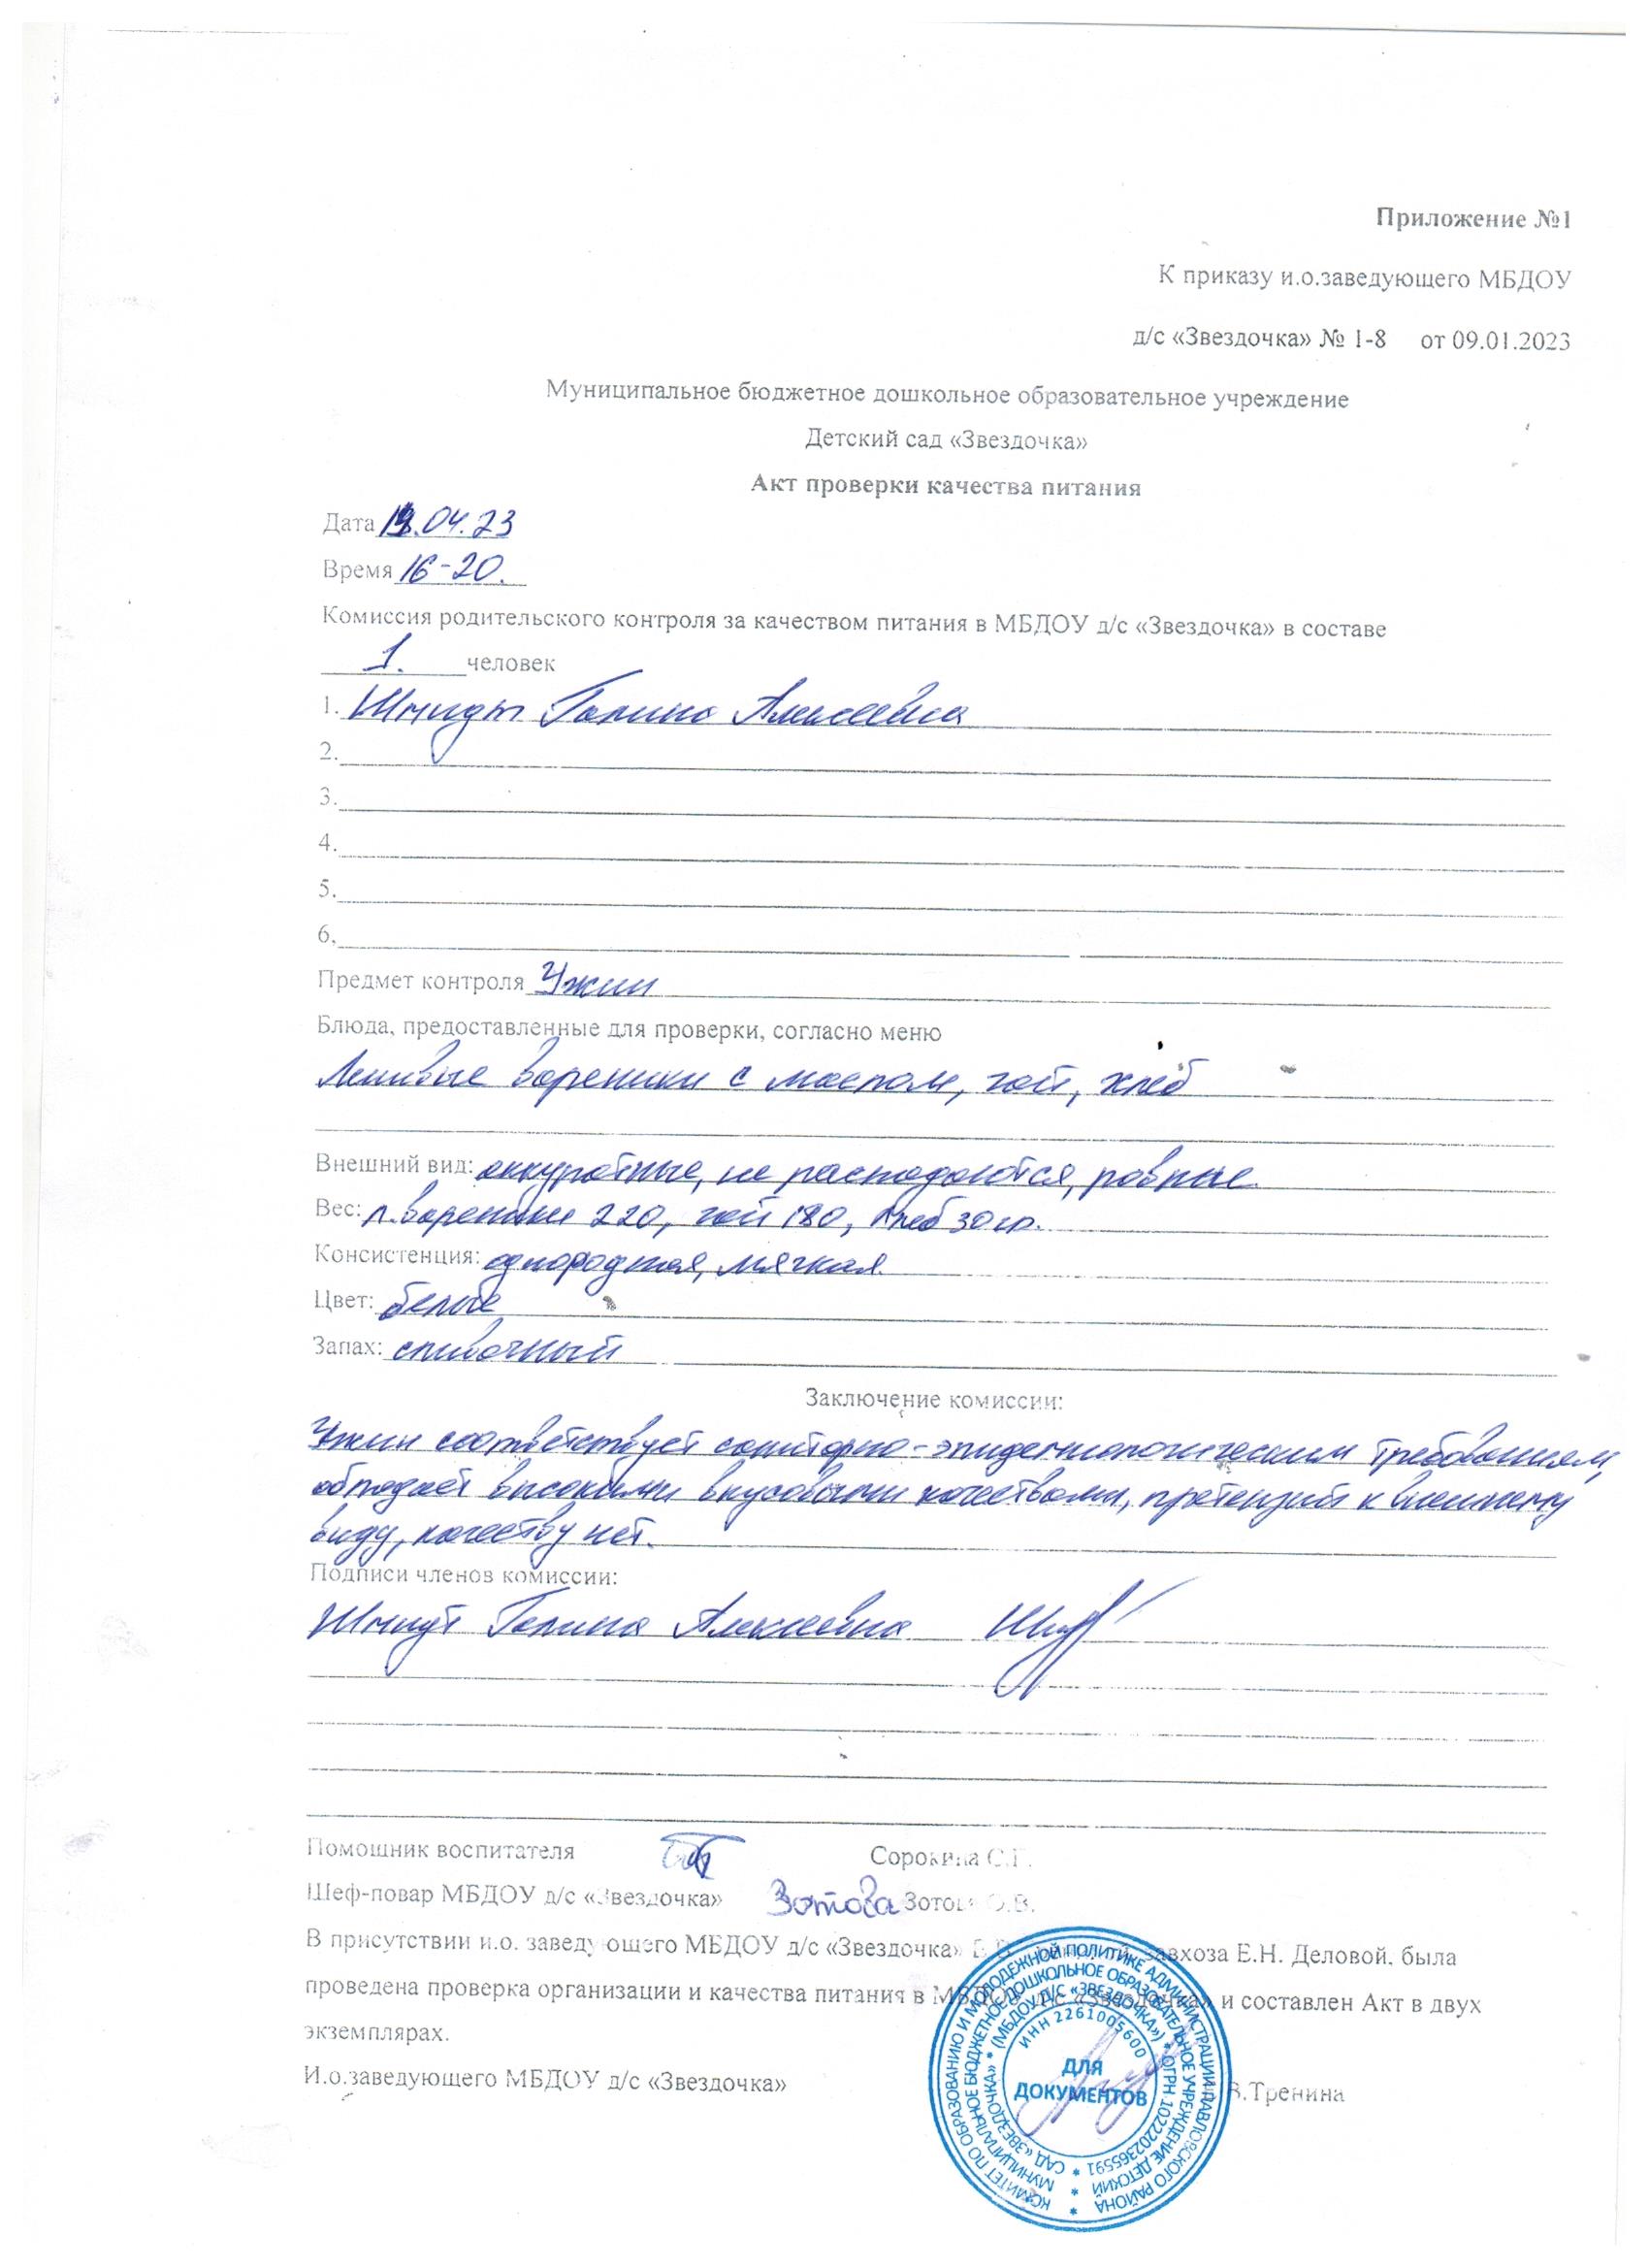 Приложение №1
К приказу и.о.заведующего МБДОУ
д/с «Звездочка» № 1-8 от 09.01.2023
Муниципальное бюджетное дошкольное образовательное учреждение
Детский сад «Звездочка»
Акт проверки качества питания
Дата .04.23
Время 16-20.
Комиссия родительского контроля за качеством питания в МБДОУ д/с «Звездочка» в составе
1. человек
1. Шмидт Галина Алексеевна
2.
3.
4.
5.
6.
Предмет контроля Ужин
Блюда, предоставленные для проверки, согласно меню
Ленивые вареники с маслом, чай, хлеб
Внешний вид: аккуратные, не распадаются, ровные.
Вес: л.вареники 220, чай 180, хлеб 30 гр.
Консистенция: однородная, мягкая.
Цвет: белые
Запах: сливочный
Заключение комиссии:
Ужин соответствует санитарно-эпидемиологическим требованиям,
обладает высокими вкусовыми качествами, претензий к внешнему
виду, качеству нет.
Подписи членов комиссии:
Шмидт Галина Алексеевна
Помощник воспитателя Сорокина С.
Шеф-повар МБДОУ д/с «Звездочка» Зотова Зотова О.В.
В присутствии и.о. заведующего МБДОУ д/с «Звездочка» завхоза Е.Н. Деловой, была
проведена проверка организации и качества питания в МБДОУ д/с «Звездочка» и составлен Акт в двух
экземплярах.
И.о.заведующего МБДОУ д/с «Звездочка» В.Тренина
КОМИТЕТ ПО ОБРАЗОВАНИЮ И МОЛОДЕЖНОЙ ПОЛИТИКЕ АДМИНИСТРАЦИИ ПАВЛОВСКОГО РАЙОНА *
МУНИЦИПАЛЬНОЕ БЮДЖЕТНОЕ ДОШКОЛЬНОЕ ОБРАЗОВАТЕЛЬНОЕ УЧРЕЖДЕНИЕ ДЕТСКИЙ *
САД «ЗВЕЗДОЧКА» * (МБДОУ Д/С «ЗВЕЗДОЧКА») * ОГРН 1022202365591 *
ИНН 2261005600
ДЛЯ
ДОКУМЕНТОВ